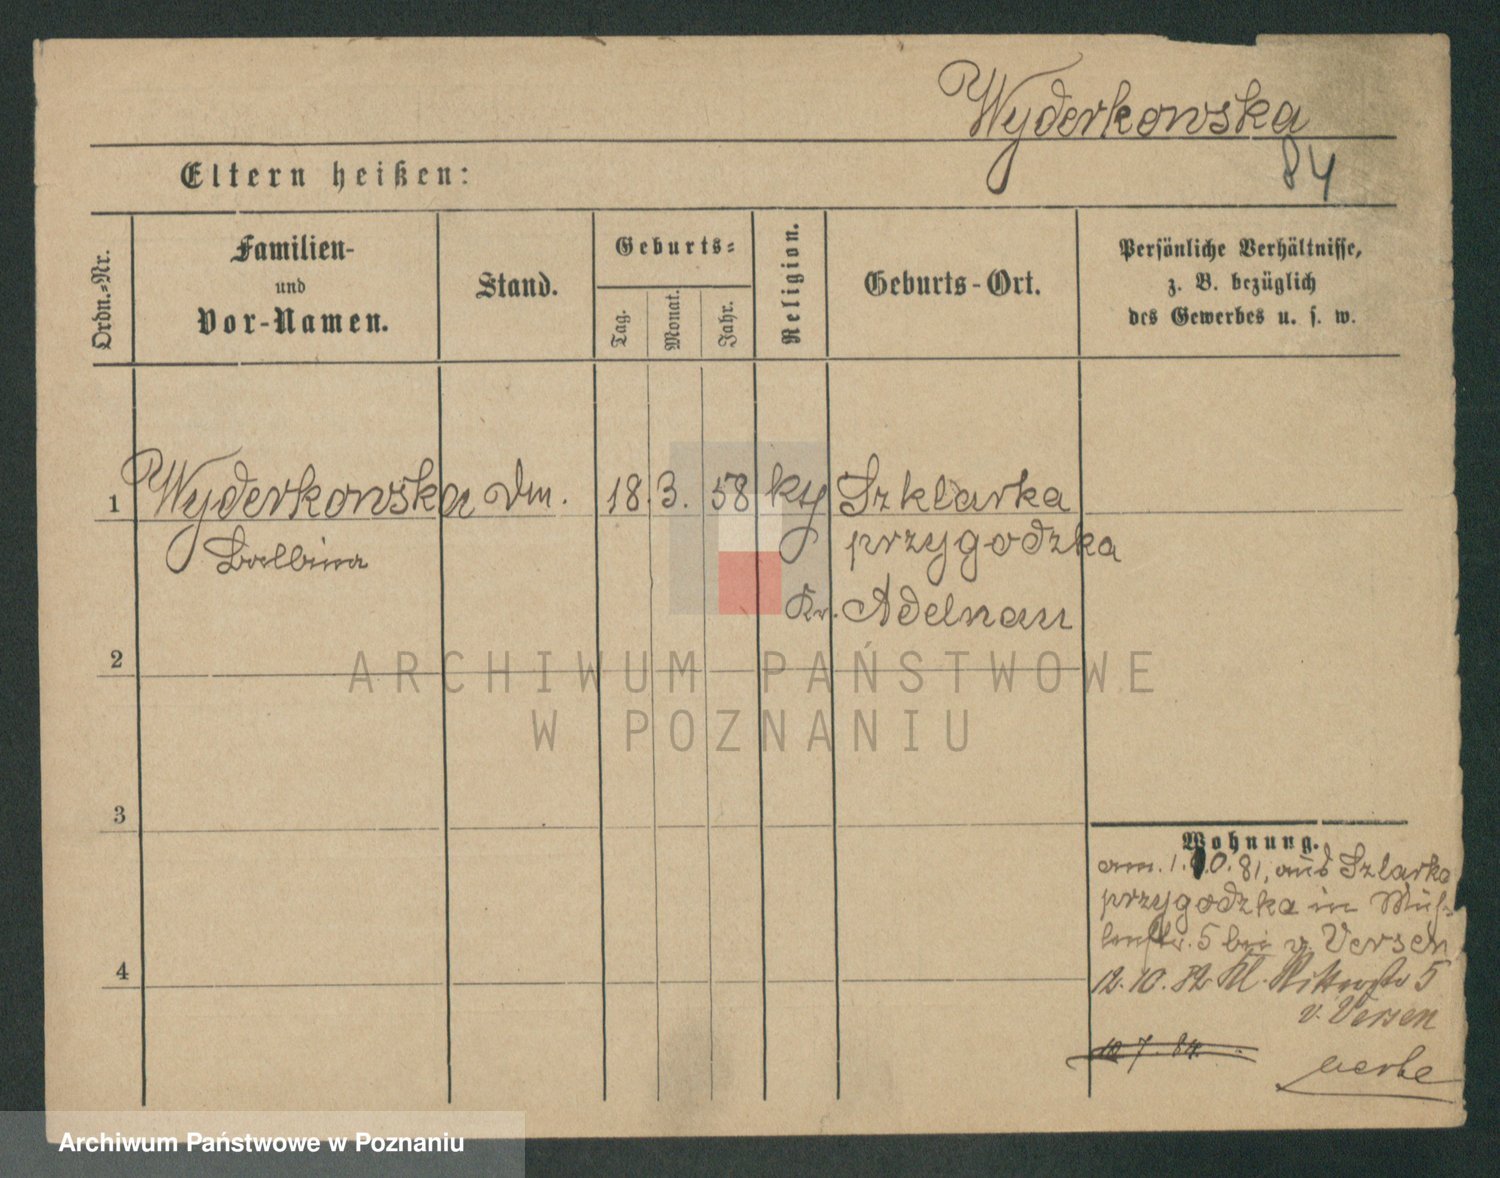 Wyderkowska
84
Eltern heißen:
Ordn.=Nr.
Familien-
und
Vor-Namen.
Stand.
Geburts=
Tag.
Monat.
Jahr.
Religion.
Geburts-Ort.
Persönliche Verhältnisse,
z. B. bezüglich
des Gewerbes u. s. w.
1 Wyderkowska Dm. 18. 3. 58 kth Szklarka
Balbina przygodzka
Kr. Adelnau
2
3
4
Wohnung.
am 1.10.81, aus Szlarka
przygodzka in Müh-
lenstr. 5 bei v. Versen
12.10.82 Kl. Ritterstr 5
v. Versen
10 7. 84.
ARCHIWUM PAŃSTWOWE
W POZNANIU
Archiwum Państwowe w Poznaniu